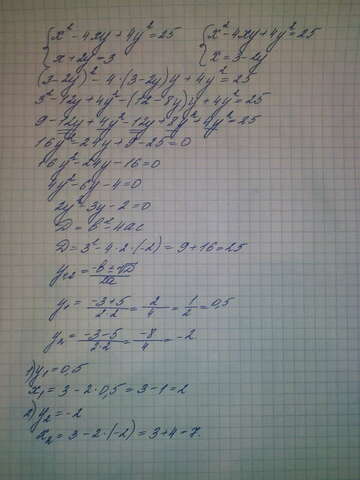 {x²-4xy+4y²=25   {x²-4xy+4y²=25
{x+2y=3   {x=3-2y
(3-2y)²-4·(3-2y)y+4y²=25
3²-12y+4y²-(12-8y)y+4y²=25
9-12y+4y²-12y+8y²+4y²=25
16y²-24y+9-25=0
16y²-24y-16=0
4y²-6y-4=0
2y²-3y-2=0
D=b²-4ac
D=3²-4·2·(-2)=9+16=25
y₁,₂=(-b±√D)/2a
y₁=(-3+5)/(2·2)=2/4=1/2=0,5
y₂=(-3-5)/(2·2)=-8/4=-2
1) y₁=0,5
x₁=3-2·0,5=3-1=2
2) y₂=-2
x₂=3-2·(-2)=3+4=7.